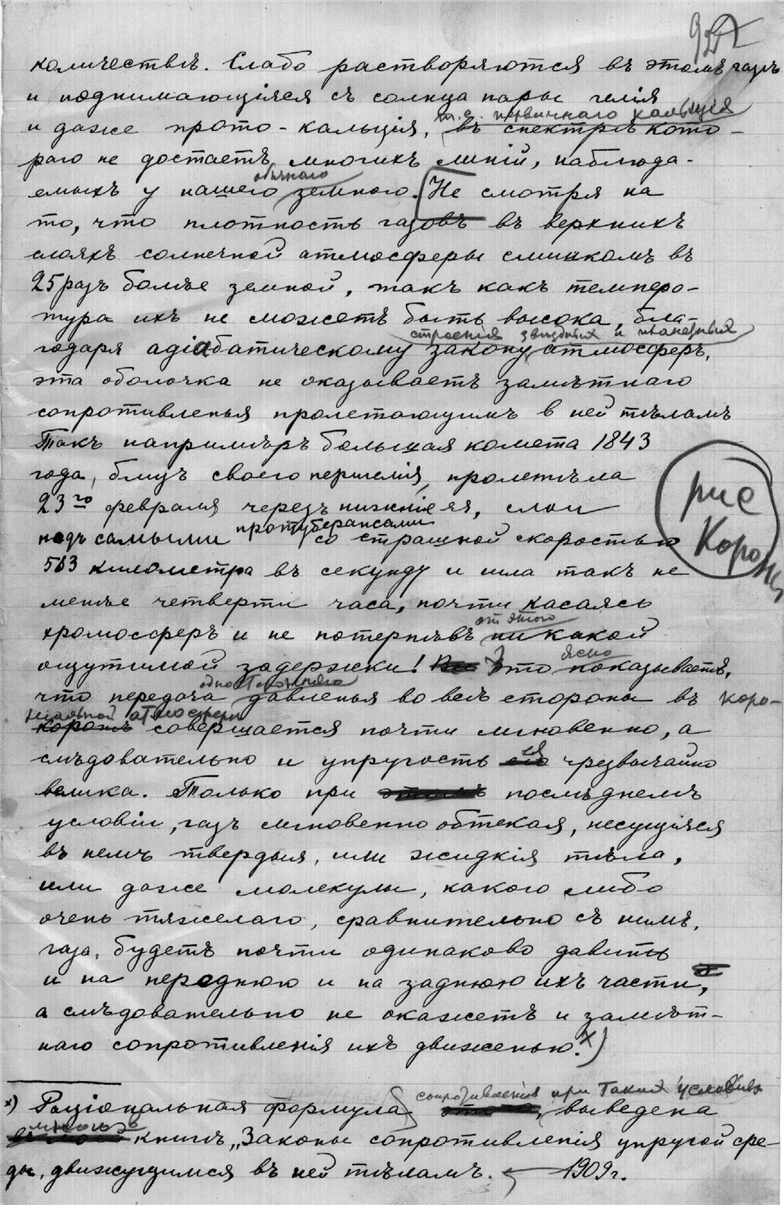 количествѣ. Слабо растворяются въ этомъ газѣ
и поднимающіяся съ солнца пары гелія
т. е. первичнаго кальція
и даже прото-кальція, въ спектрѣ кото-
раго не достаетъ многихъ линій, наблюда-
обычнаго
емыхъ у нашего земного. Не смотря на
то, что плотность газовъ въ верхнихъ
слояхъ солнечной атмосферы слишкомъ въ
25 разъ болѣе земной, такъ какъ темпера-
тура ихъ не можетъ быть высока, бла-
строенія звѣздныхъ и планетныхъ
годаря адіабатическому закону атмосферъ,
эта оболочка не оказываетъ замѣтнаго
сопротивленья пролетающимъ в ней тѣламъ
Такъ напримѣръ большая комета 1843
года, близъ своего перигелія, пролетѣла
23го февраля черезъ нижніе ея, слои
протуберансами
подъ самыми со страшной скоростью
рис
Короны
563 километра въ секунду и шла такъ не
менѣе четверти часа, почти касаясь
отъ этого
хромосферъ и не потерпѣвъ никакой
ясно
ощутимой задержки! Это показываетъ,
что передача давленья во всѣ стороны въ коро-
нальной атмосферѣ
коронѣ совершается почти мгновенно, а
ея
слѣдовательно и упругость чрезвычайно
велика. Только при послѣднемъ
условіи, газъ мгновенно обтекая, несущіяся
въ немъ твердыя, или жидкія тѣла,
или даже молекулы, какого либо
очень тяжелаго, сравнительно съ нимъ,
газа, будетъ почти одинаково давить
и на переднюю и на заднюю ихъ части,
а слѣдовательно не окажетъ и замѣт-
наго сопротивленія ихъ движенью.х)
сопротивленія при такихъ условіяхъ
х) Раціональная формула выведена
мною въ
книгѣ „Законы сопротивленія упругой сре-
ды, движущимся въ ней тѣламъ. 1909г.